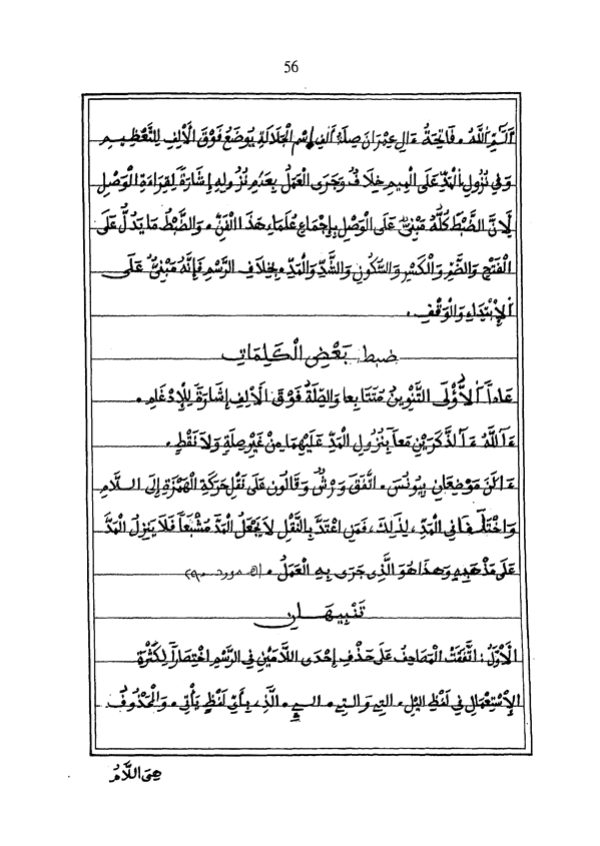 56
أَلَمِّ اللَّهُ ۰ فَاتِحَةُ ءَالِ عِمْرَانَ صِلَةُ أَلِفِ إِسْمِ الْجَلَالَةِ يُوضَعُ فَوْقَ الْأَلِفِ لِلتَّعْظِيمِ
وَفِي نُزُولِ الْمَدِّ عَلَى الْمِيمِ خِلَافٌ وَجَرَى الْعَمَلُ بِعَدَمِ نُزُولِهِ إِشَارَةً لِقِرَاءَةِ الْوَصْلِ
لِأَنَّ الضَّبْطَ كُلَّهُ مَبْنِيٌّ عَلَى الْوَصْلِ بِإِجْمَاعِ عُلَمَاءِ هَذَا الْفَنِّ ۰ وَالضَّبْطُ مَا يَدُلُّ عَلَى
الْفَتْحِ وَالضَّمِّ وَالْكَسْرِ وَالسُّكُونِ وَالشَّدِّ وَالْمَدِّ ۰ بِخِلَافِ الرَّسْمِ فَإِنَّهُ مَبْنِيٌّ عَلَى
الْإِبْتِدَاءِ وَالْوَقْفِ ۰
ضبط بَعْضِ الْكَلِمَاتِ
عَاداً الْأُولَى التَّنْوِينُ مُتَتَابِعا وَالصِّلَةُ فَوْقَ الْأَلِفِ إِشَارَةً لِلْإِدْغَامِ ۰
ءَآللَّهُ ءَآلذَّكَرَيْنِ مَعاً بِنُزُولِ الْمَدِّ عَلَيْهِمَا مِنْ غَيْرِ صِلَةٍ وَلَا نَقْطٍ ۰
ءَالَنَ مَوْضِعَانِ بِيُونُسَ ۰ اتَّفَقَ وَرْشٌ وَقَالُونَ عَلَى نَقْلِ حَرَكَةِ الْهَمْزَةِ إِلَى السَّلَامِ
وَاخْتَلَفَا فِي الْمَدِّ، لِذَلِكَ، فَمَنِ اعْتَدَّ بِالنَّقْلِ لَا يَجْعَلُ الْمَدَّ مُشْبَعاً فَلَا يَنْزِلُ الْمَدَّ
عَلَى مَذْهَبِهِ وَهَذَا هُوَ الَّذِي جَرَى بِهِ الْعَمَلُ ۰
تَنْبِيهَانِ
الْأَوَّلُ: اتَّفَقَتْ الْمَصَاحِفُ عَلَى حَذْفِ إِحْدَى اللَّامَيْنِ فِي الرَّسْمِ اخْتِصَاراً لِكَثْرَةِ
الْإِسْتِعْمَالِ فِي لَفْظِ اليْلِ ۰ التِي وَالتِي ۰ الَّذِي بِأَيِّ لَفْظٍ يَأْتِي ۰ وَالْمَحْذُوفُ
هِيَ اللَّامُ